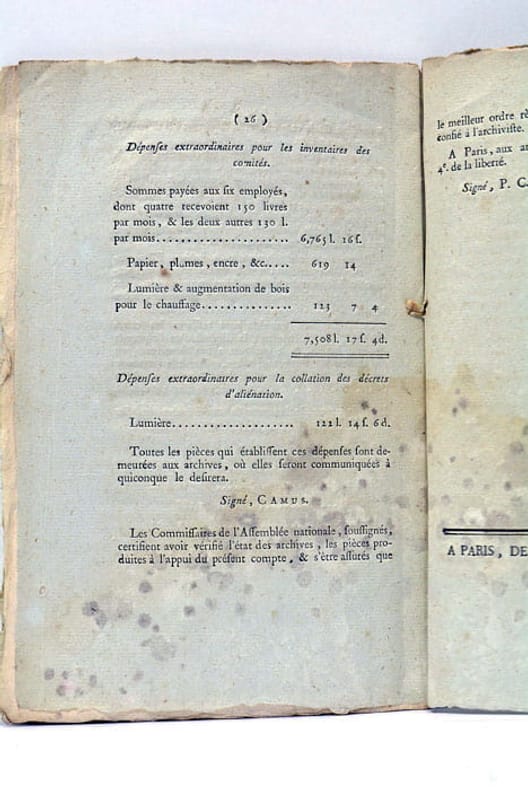 ( 26 )
Dépenſes extraordinaires pour les inventaires des
comités.
Sommes payées aux ſix employés,
dont quatre recevoient 150 livres
par mois, & les deux autres 130 l.
par mois...................... 6,765 l. 16 ſ.
Papier, plumes, encre, &c..... 619 14
Lumière & augmentation de bois
pour le chauffage............... 123 7 4
7,508 l. 17 ſ. 4 d.
Dépenſes extraordinaires pour la collation des décrets
d'aliénation.
Lumière.................... 122 l. 14 ſ. 6 d.
Toutes les pièces qui établiſſent ces dépenſes ſont de-
meurées aux archives, où elles ſeront communiquées à
quiconque le deſirera.
Signé, CAMUS.
Les Commiſſaires de l'Aſſemblée nationale, ſouſſignés,
certifient avoir vérifié l'état des archives, les pièces pro-
duites à l'appui du préſent compte, & s'être aſſurés que
le meilleur ordre
confié à l'archiviſte.
A Paris, aux
4e. de la liberté.
Signé, P. C
A PARIS, DE